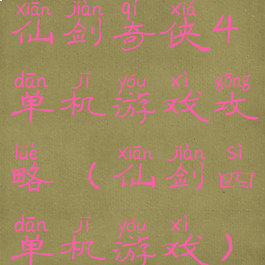 xiān jiàn qí xiá
仙剑奇侠4
dān jī yóu xì gōng
单机游戏攻
lüè xiān jiàn sì
略（仙剑四
dān jī yóu xì
单机游戏）